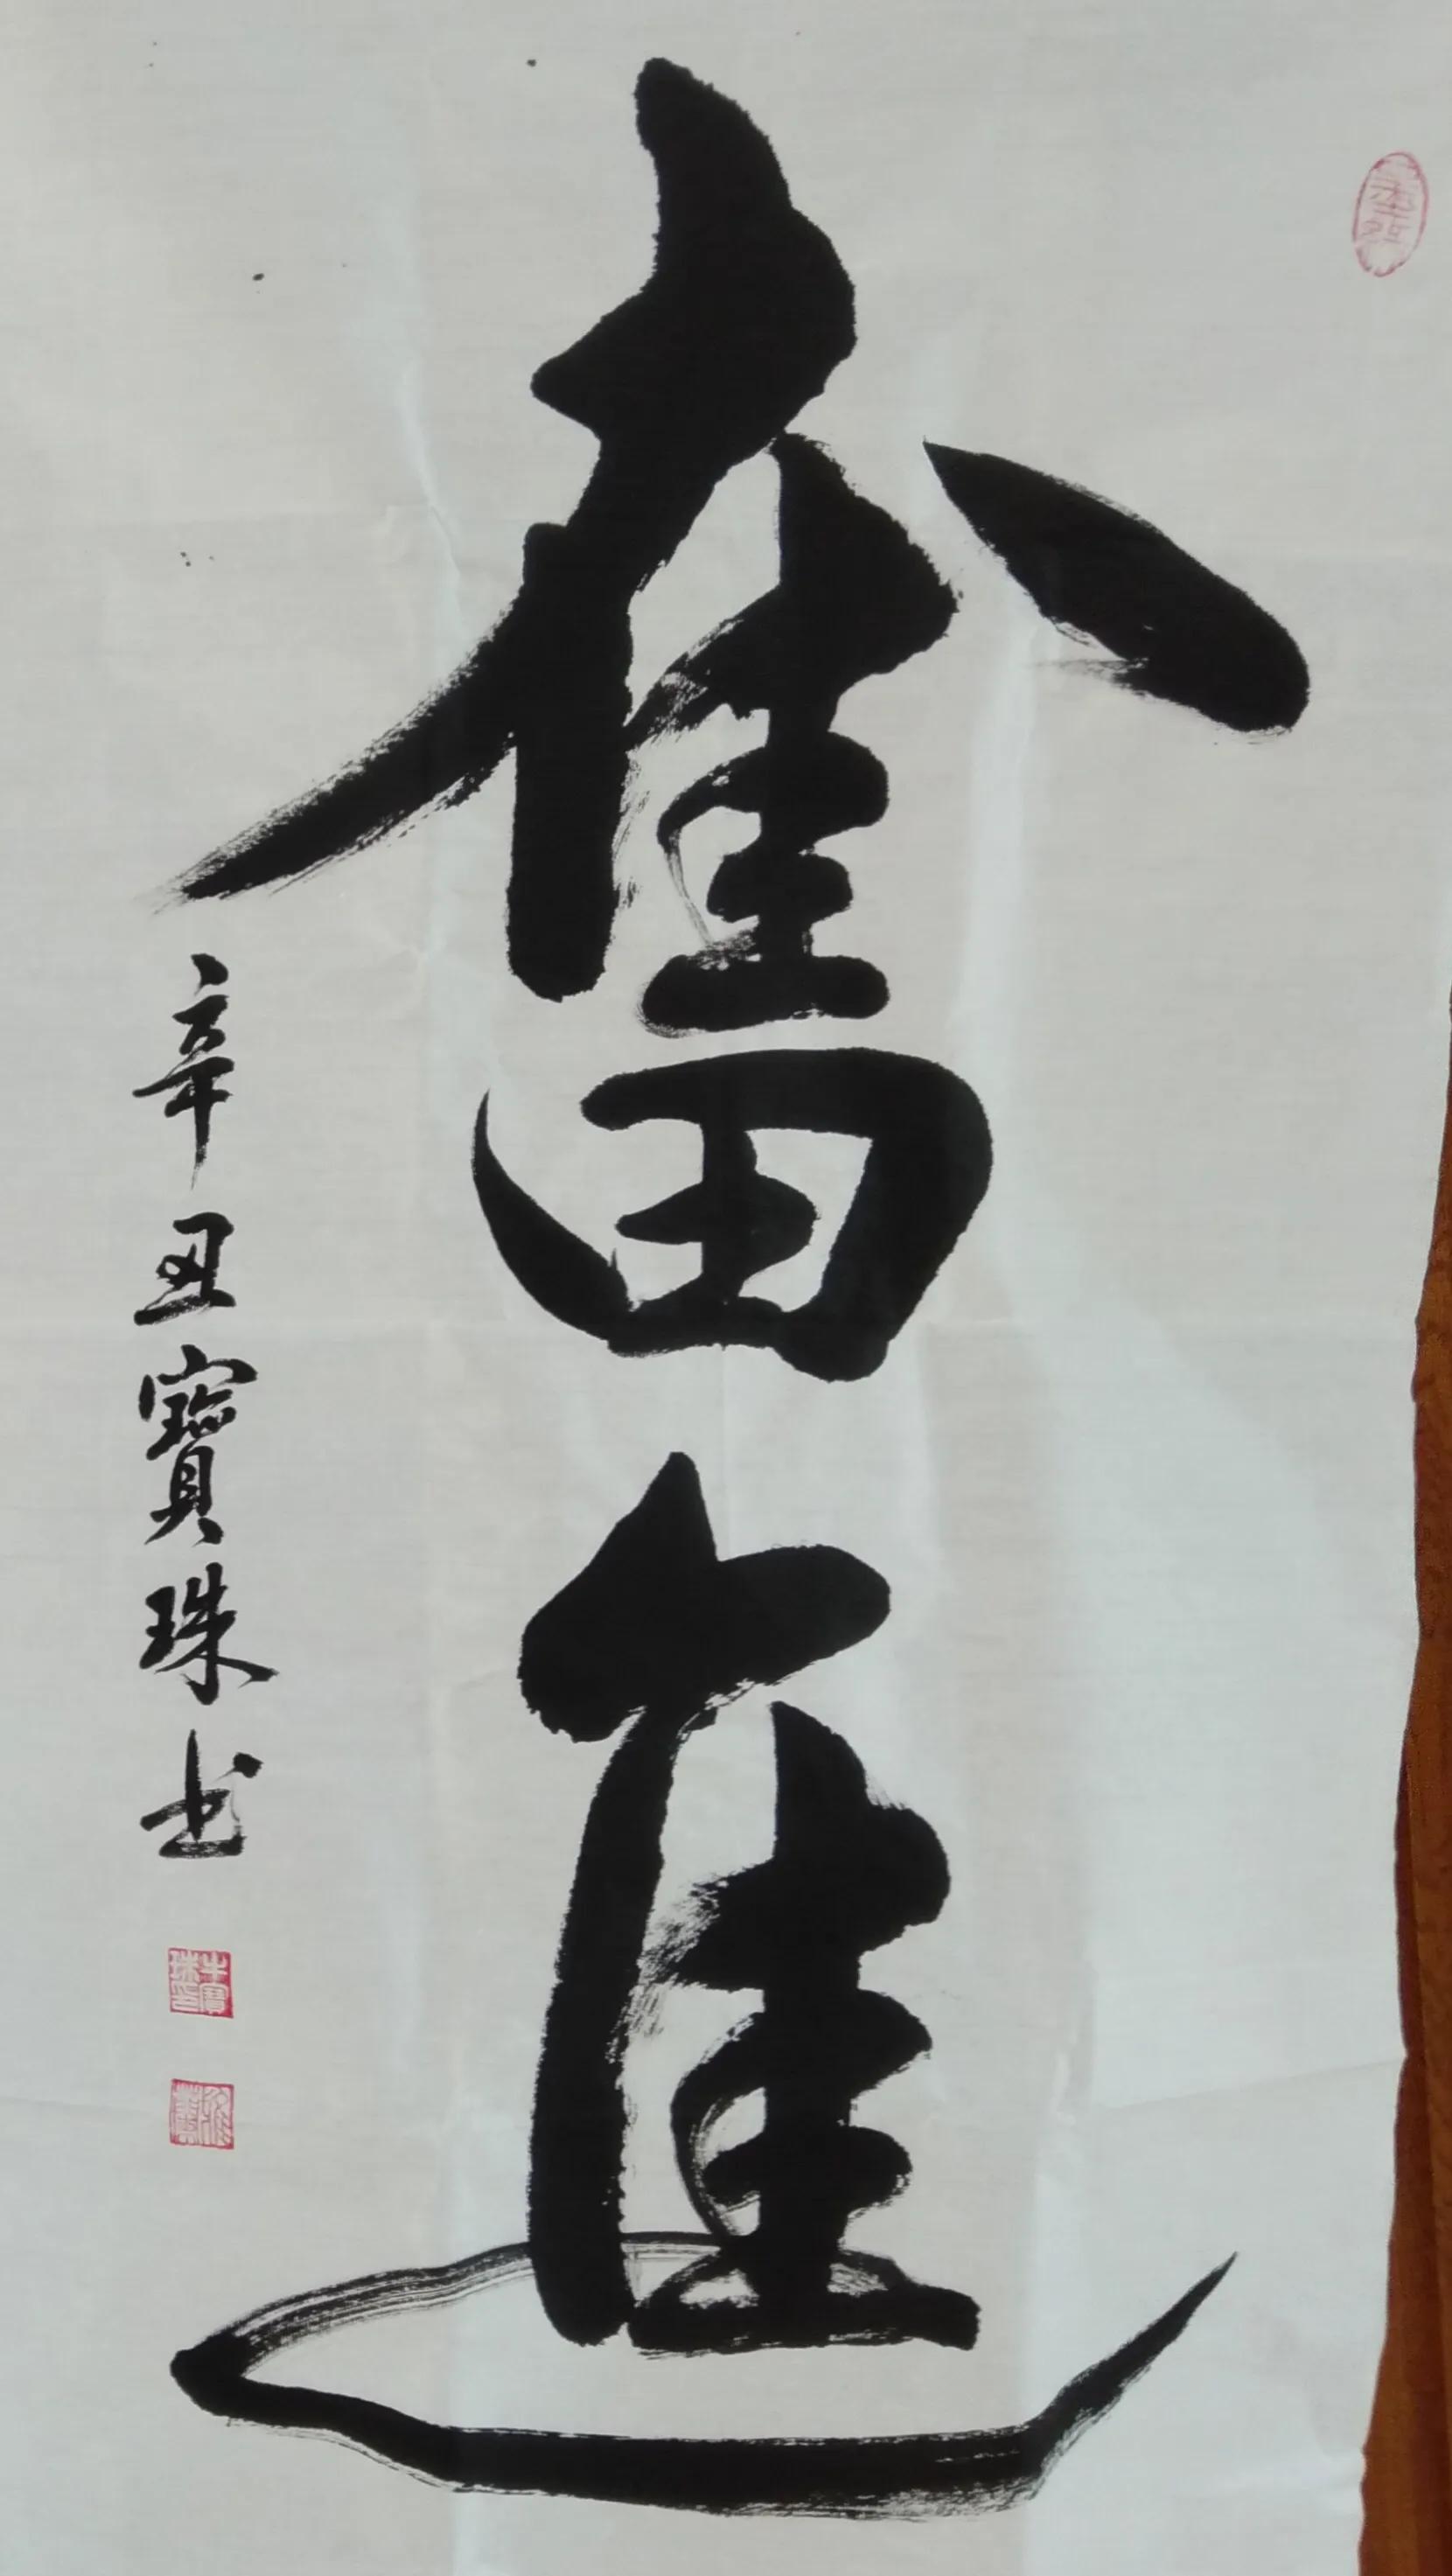 奮進
辛丑寶珠书